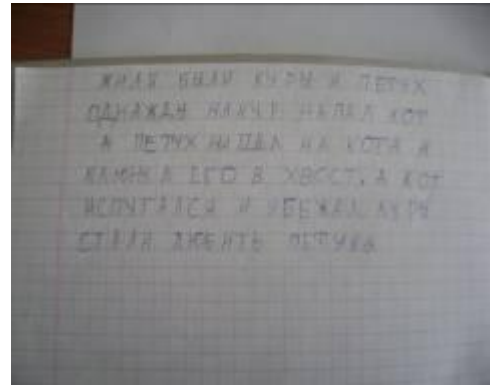 ЖИЛИ БЫЛИ КУРЫ И ПЕТУХ
ОДНАЖДЫ НА КУР НАПАЛ КОТ
А ПЕТУХ НАПАЛ НА КОТА И
КЛЮНУЛ ЕГО В ХВОСТ. А КОТ
ИСПУГАЛСЯ И УБЕЖАЛ КУРЫ
СТАЛИ ПЕТУХА